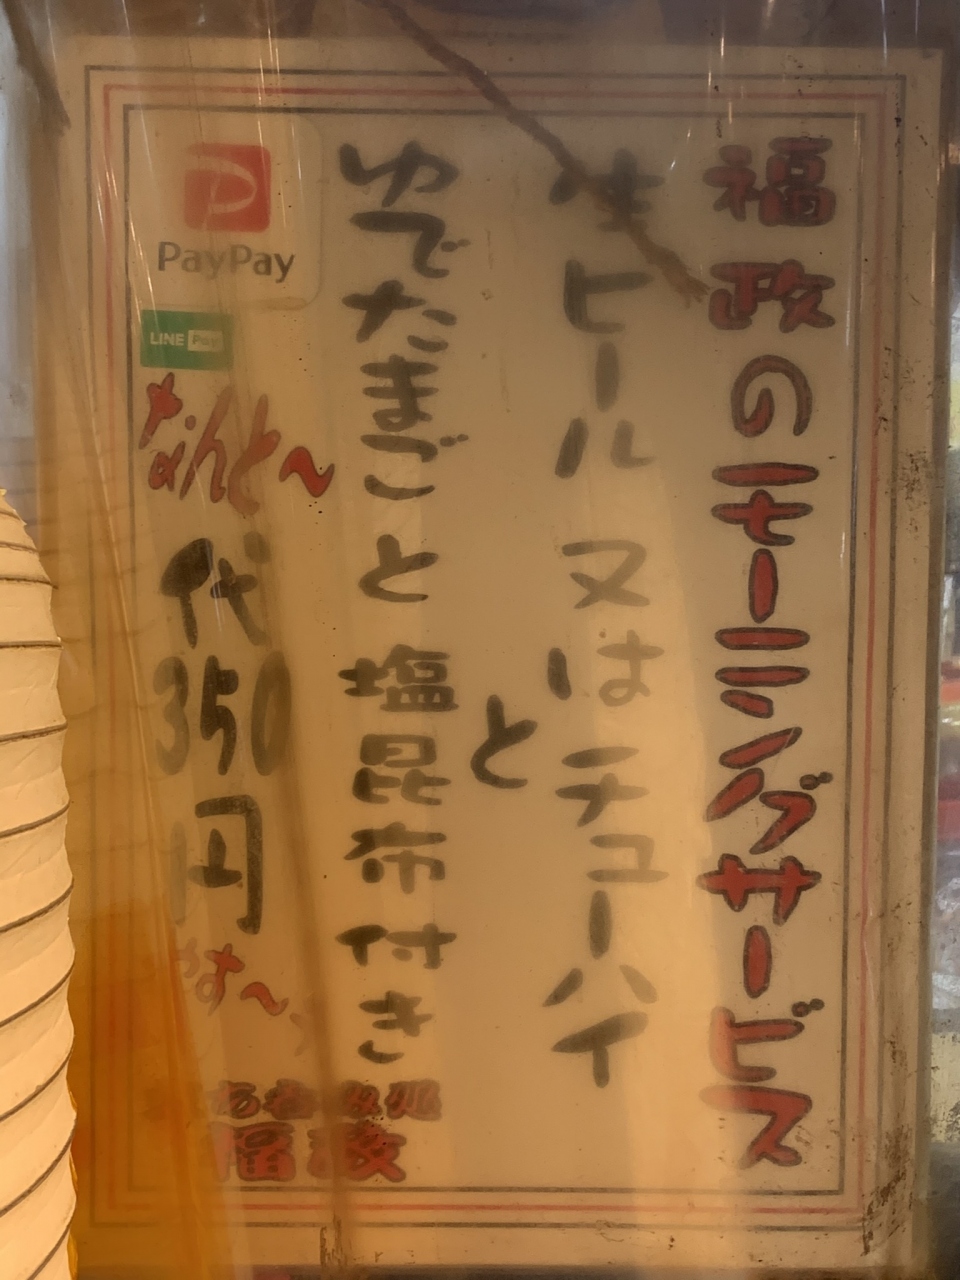 福政のモーニングサービス
生ビール又はチューハイ
と
ゆでたまごと塩昆布付き
PayPay
LINE Pay
なんと〜
代350円
です〜
お呑み処
福政